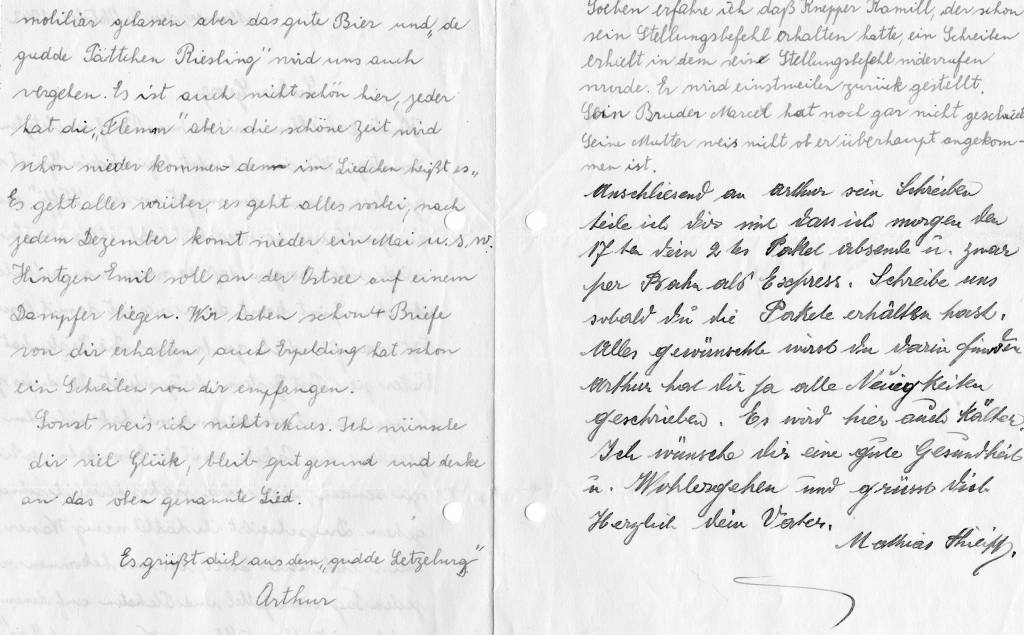 mobiliär gelassen aber das gute Bier und „de
gudde Pättchen Riesling“ wird uns auch
vergehen. Es ist auch nicht schön hier, jeder
hat die „Flemm“ aber die schöne Zeit wird
schon wieder kommen denn im Liedchen heißt es „
Es geht alles vorüber, es geht alles vorbei, nach
jedem Dezember komt wieder ein Mai u. s. w.
Hintgen Emil soll an der Ostsee auf einem
Dampfer liegen. Wir haben schon 4 Briefe
von dir erhalten, auch Erpelding hat schon
ein Schreiben von dir empfangen.
Sonst weis ich nichts Neues. Ich wünsche
dir viel Glück, bleib gut gesund und denke
an das oben genannte Lied.
Es grüßt dich aus dem „gudde Letzeburg“
Arthur
Soeben erfahre ich daß Knepper Kamill, der schon
sein Stellungsbefehl erhalten hatte, ein Schreiben
erhielt in dem seine Stellungsbefehl widerrufen
wurde. Er wird einstweilen zurück gestellt.
Sein Bruder Marcel hat noch gar nicht geschrieb
Seine Mutter weis nicht ob er überhaupt angekom-
men ist.
Anschliesend an Arthur sein Schreiben
teile ich dir mit dass ich morgen den
17ten dein 2tes Paket absende u. zwar
per Bahn als Express. Schreibe uns
sobald du die Pakete erhälten hast.
Alles gewünschte wirst du darin finden
Arthur hat dir ja alle Neuigkeiten
geschrieben. Es wird hier auch Kälter.
Ich wünsche dir eine gute Gesundheit
u. Wohlergehen und grüsst dich
Herzlich dein Vater.
Mathias